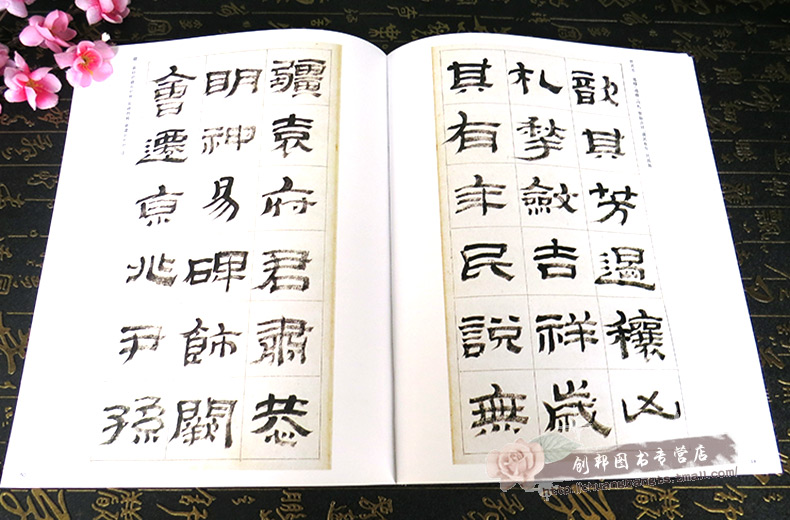 歆其芳遏穰凶
札揫斂吉祥歲
其有年民說無
疆袁府君肅恭
明神易碑飾闕
會遷京兆尹孫
创邦图书专营店